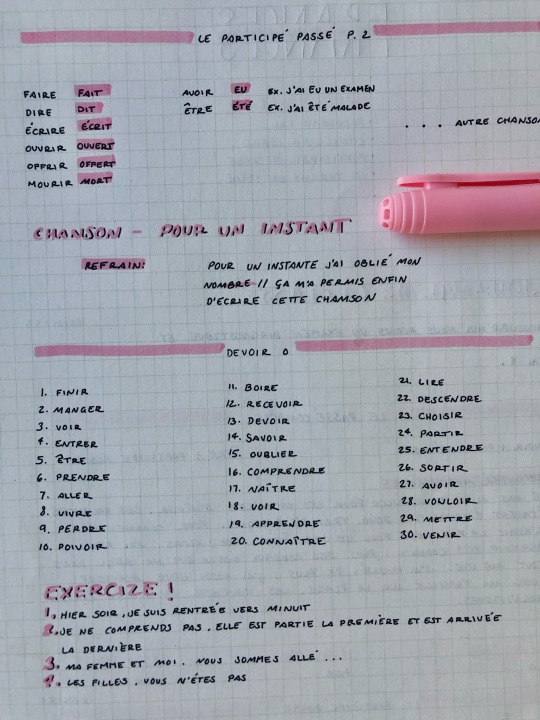 LE PARTICIPÉ PASSÉ P. 2
FAIRE FAIT
DIRE DIT
ÉCRIRE ÉCRIT
OUVRIR OUVERT
OFFRIR OFFERT
MOURIR MORT
AVOIR EU EX. J'AI EU UN EXAMEN
ÊTRE ÉTÉ EX. J'AI ÉTÉ MALADE
. . . . AUTRE CHANSON
CHANSON – POUR UN INSTANT
REFRAIN: POUR UN INSTANTE J'AI OBLIÉ MON
NOMBRE // ÇA M'A PERMIS ENFIN
D'ECRIRE CETTE CHAMSON
DEVOIR
1. FINIR
2. MANGER
3. VOIR
4. ENTRER
5. ÊTRE
6. PRENDRE
7. ALLER
8. VIVRE
9. PERDRE
10. POIVOIR
11. BOIRE
12. RECEVOIR
13. DEVOIR
14. SAVOIR
15. OUBLIER
16. COMPRENDRE
17. NAÎTRE
18. VOIR
19. APPRENDRE
20. CONNAÎTRE
21. LIRE
22. DESCENDRE
23. CHOISIR
24. PARTIR
25. ENTENDRE
26. SORTIR
27. AVOIR
28. VOULOIR
29. METTRE
30. VENIR
EXERCIZE !
1, HIER SOIR, JE SUIS RENTRÉE VERS MINUIT
2, JE NE COMPRENDS PAS. ELLE EST PARTIE LA PREMIÈRE ET EST ARRIVÉE
LA DERNIÈRE
3. MA FEMME ET MOI. NOUS SOMMES ALLÉ ...
4. LES FILLES. VOUS N'ÉTES PAS